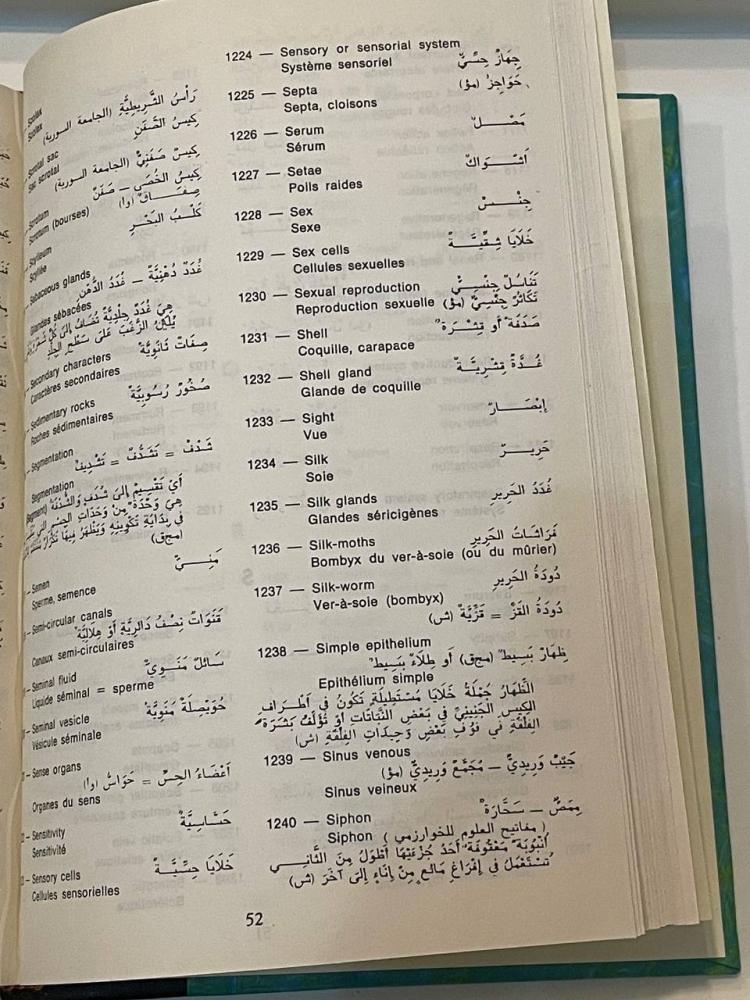 Scolex
Scolex
رَأْسُ الشَّرِيطِيَّةِ (الجامعة السورية)
Scrotal sac
Sac scrotal
كِيسُ الصَّفَنِ
كِيسٌ صَفَنِيٌّ (الجامعة السورية)
Scrotum
Scrotum (bourses)
كِيسُ الخُصَى — صَفَنٌ
صِفَاقٌ (وا)
Scyllium
Scyllie
كَلْبُ البَحْرِ
Sebaceous glands
Glandes sébacées
غُدَدٌ دُهْنِيَّةٌ — غُدَدُ الدُّهْنِ
هِيَ غُدَدٌ جِلْدِيَّةٌ تُضَافُ إِلَى كُلِّ
عَلَى سَطْحِ الجِلْدِ
Secondary characters
Caractères secondaires
صِفَاتٌ ثَانَوِيَّةٌ
Sedimentary rocks
Roches sédimentaires
صُخُورٌ رُسُوبِيَّةٌ
– Segmentation
Segmentation
شَدْفٌ = تَشَدُّفٌ = تَشْدِيفٌ
أَيْ تَقْسِيمٌ إِلَى شُدَفٍ وَالشُّدْفَةُ (segment)
هِيَ وَحْدَةٌ مِنْ وَحَدَاتِ الجِسْمِ
فِي بِدَايَةِ تَكْوِينِهِ وَيَظْهَرُ فِيهَا تَكْرَارٌ
(مج‌ق)
– Semen
Sperme, semence
مَنِيٌّ
– Semi-circular canals
Canaux semi-circulaires
قَنَوَاتٌ نِصْفُ دَائِرِيَّةٍ أَوْ هِلَالِيَّةٌ
– Seminal fluid
Liquide séminal = sperme
سَائِلٌ مَنَوِيٌّ
– Seminal vesicle
Vésicule séminale
حُوَيْصِلَةٌ مَنَوِيَّةٌ
– Sense organs
Organes du sens
أَعْضَاءُ الحِسِّ = حَوَاسُّ (وا)
– Sensitivity
Sensitivité
حَسَّاسِيَّةٌ
– Sensory cells
Cellules sensorielles
خَلَايَا حِسِّيَّةٌ
1224 — Sensory or sensorial system
Système sensoriel
جِهَازٌ حِسِّيٌّ
1225 — Septa
Septa, cloisons
حَوَاجِزُ (مؤ)
1226 — Serum
Sérum
مَصْلٌ
1227 — Setae
Poils raides
أَشْوَاكٌ
1228 — Sex
Sexe
جِنْسٌ
1229 — Sex cells
Cellules sexuelles
خَلَايَا شِقِّيَّةٌ
1230 — Sexual reproduction
Reproduction sexuelle
تَنَاسُلٌ جِنْسِيٌّ
تَكَاثُرٌ جِنْسِيٌّ (مؤ)
1231 — Shell
Coquille, carapace
صَدَفَةٌ أَو قِشْرَةٌ
1232 — Shell gland
Glande de coquille
غُدَّةٌ قِشْرِيَّةٌ
1233 — Sight
Vue
إِبْصَارٌ
1234 — Silk
Soie
حَرِيرٌ
1235 — Silk glands
Glandes séricigènes
غُدَدُ الحَرِيرِ
1236 — Silk-moths
Bombyx du ver-à-soie (ou du mûrier)
فَرَاشَاتُ الحَرِيرِ
1237 — Silk-worm
Ver-à-soie (bombyx)
دُودَةُ الحَرِيرِ
دُودَةُ القَزِّ = قَزِّيَّةٌ (ش)
1238 — Simple epithelium
Epithélium simple
ظِهَارٌ بَسِيطٌ (مج‌ق) أَو طِلَاءٌ بَسِيطٌ
الظِّهَارُ جُمْلَةُ خَلَايَا مُسْتَطِيلَةٍ تَكُونُ فِي أَطْرَافِ
الكِيسِ الجَنِينِيِّ فِي بَعْضِ النَّبَاتَاتِ أَوْ تُؤَلِّفُ بَشَرَةَ
الفِلْقَةِ فِي بَعْضِ وَحِيدَاتِ الفِلْقَةِ (ش)
1239 — Sinus venous
Sinus veineux
جَيْبٌ وَرِيدِيٌّ — مُجَمَّعٌ وَرِيدِيٌّ (مؤ)
1240 — Siphon
Siphon
مِمَصٌّ — سَحَّارَةٌ
(مفاتيح العلوم للخوارزمي)
أُنْبُوبَةٌ مَعْقُوفَةٌ أَحَدُ جُزْءَيْهَا أَطْوَلُ مِنَ الثَّانِي
تُسْتَعْمَلُ فِي إِفْرَاغِ مَائِعٍ مِنْ إِنَاءٍ إِلَى آخَرَ (ش)
52